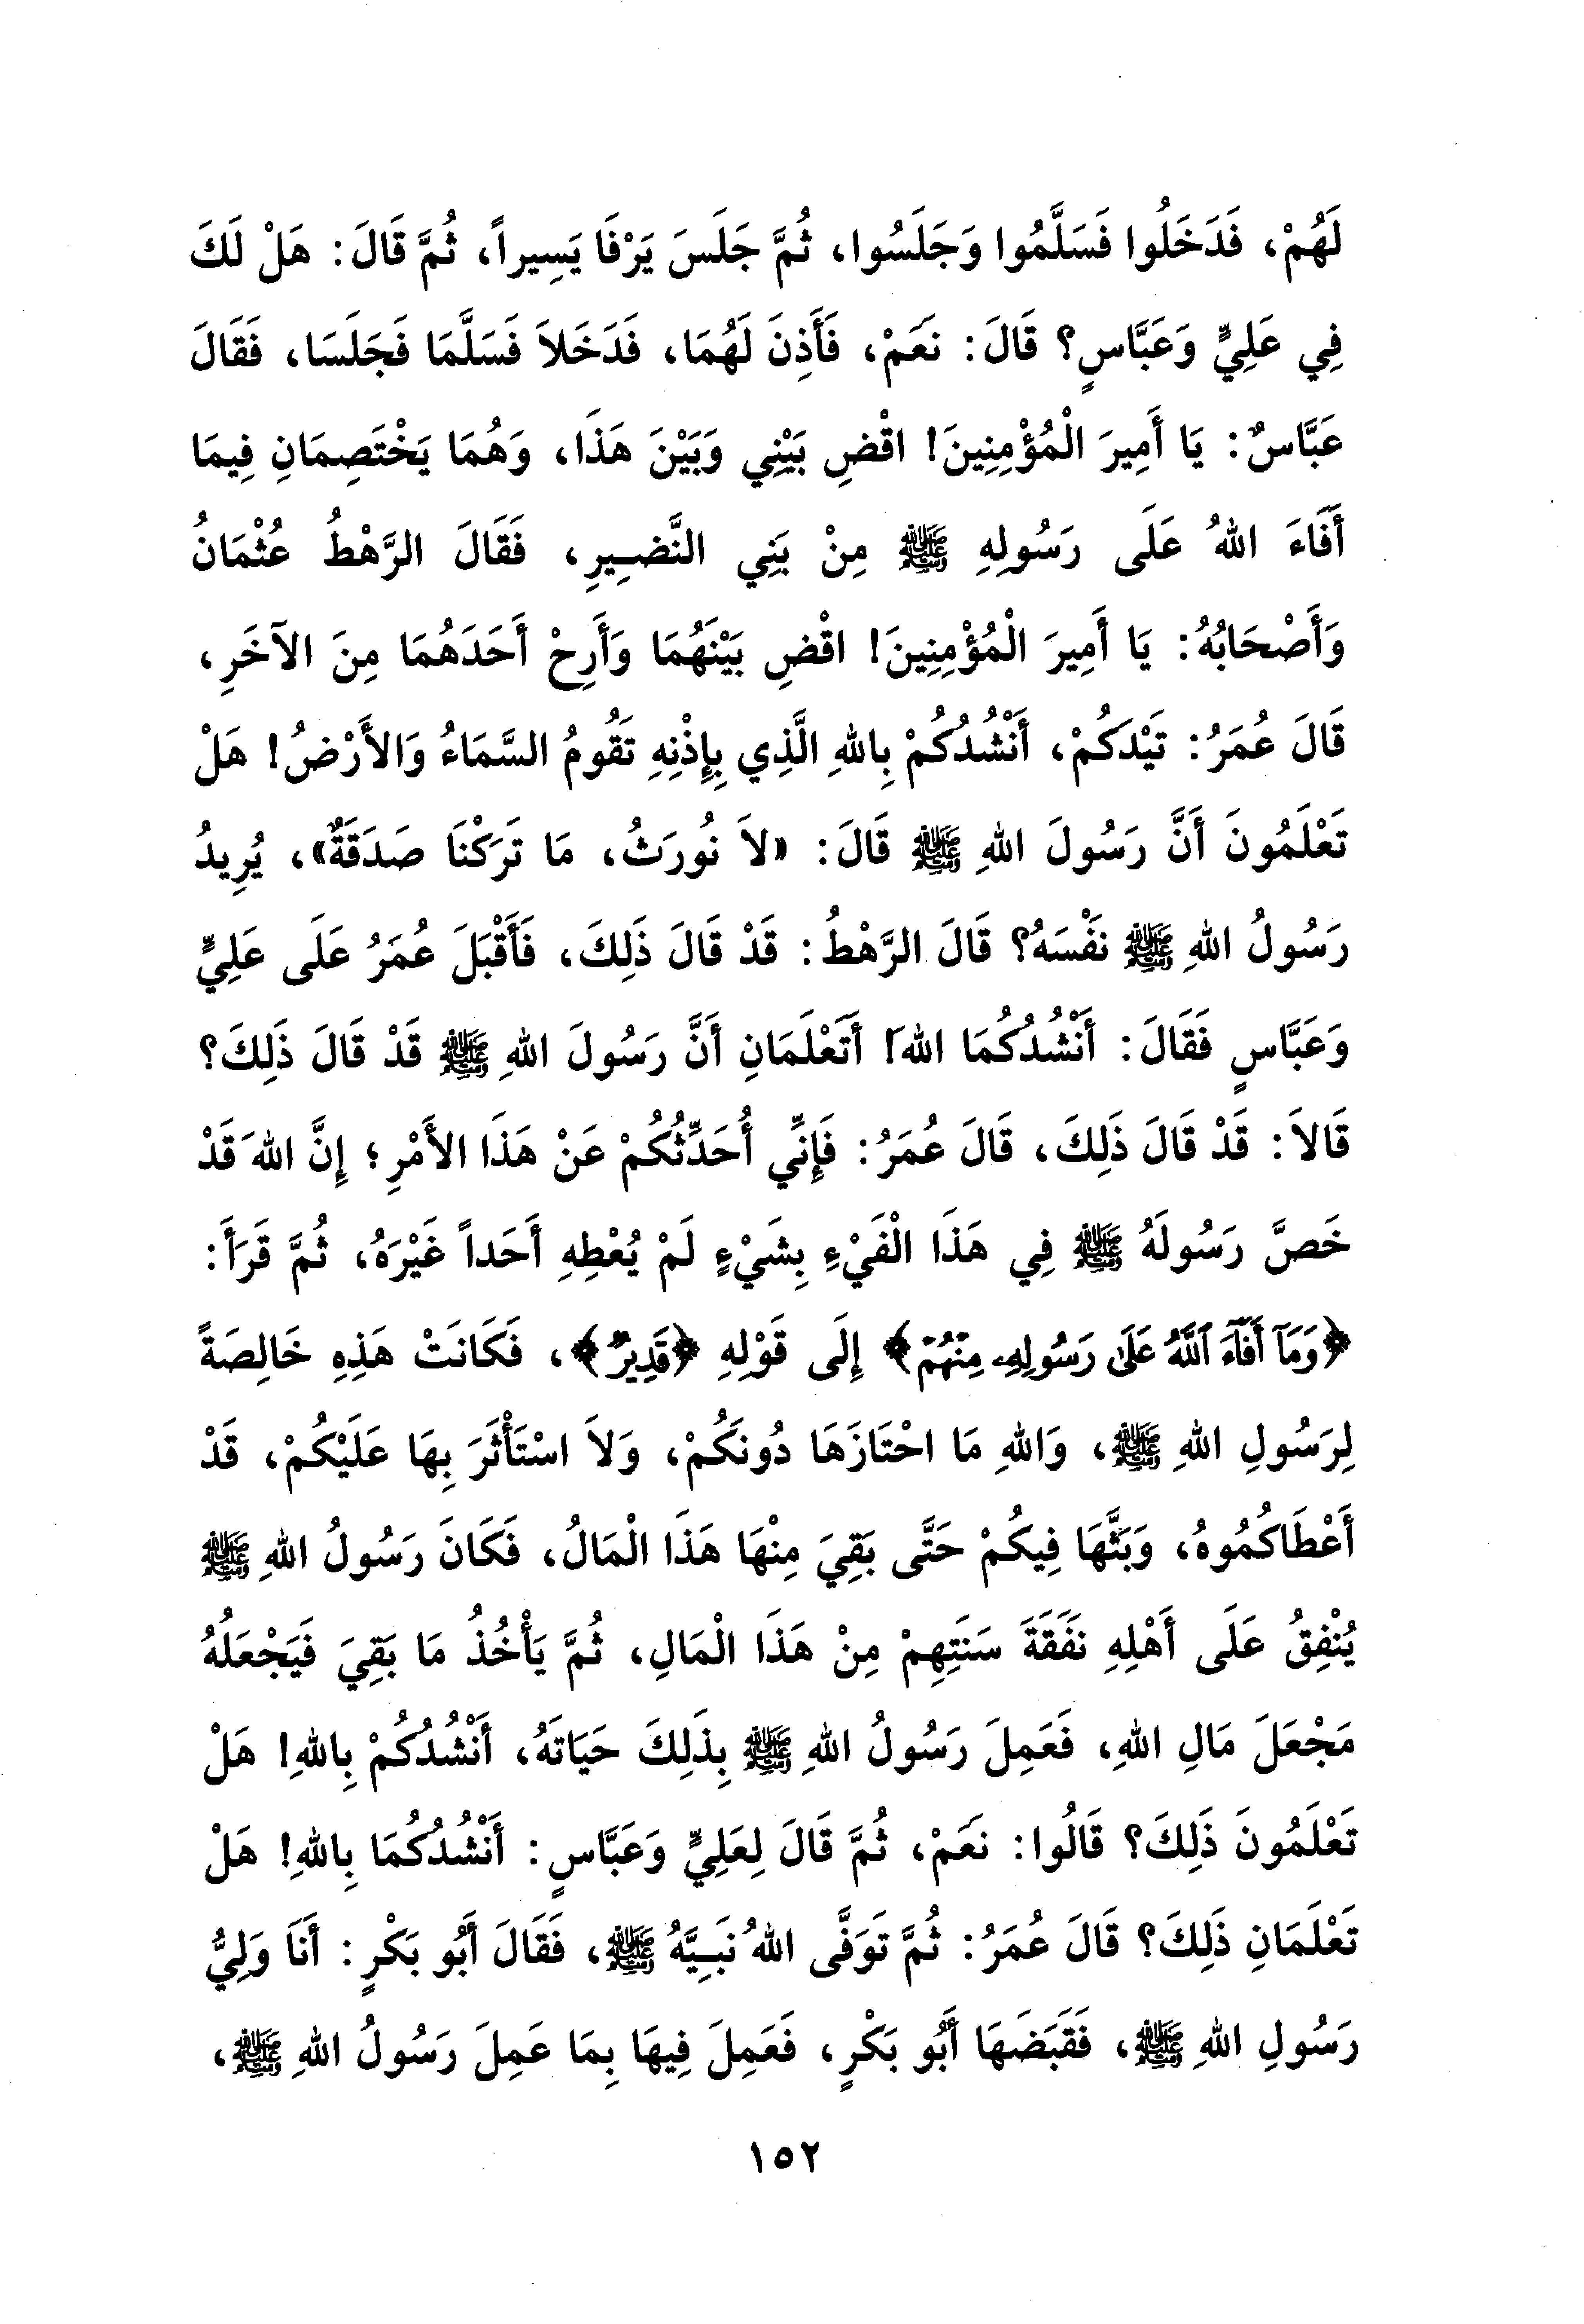 لَهُمْ، فَدَخَلُوا فَسَلَّمُوا وَجَلَسُوا، ثُمَّ جَلَسَ يَرْفَا يَسِيراً، ثُمَّ قَالَ: هَلْ لَكَ
فِي عَلِيٍّ وَعَبَّاسٍ؟ قَالَ: نَعَمْ، فَأَذِنَ لَهُمَا، فَدَخَلاَ فَسَلَّمَا فَجَلَسَا، فَقَالَ
عَبَّاسٌ: يَا أَمِيرَ الْمُؤْمِنِينَ! اقْضِ بَيْنِي وَبَيْنَ هَذَا، وَهُمَا يَخْتَصِمَانِ فِيمَا
أَفَاءَ اللهُ عَلَى رَسُولِهِ ﷺ مِنْ بَنِي النَّضِيرِ، فَقَالَ الرَّهْطُ عُثْمَانُ
وَأَصْحَابُهُ: يَا أَمِيرَ الْمُؤْمِنِينَ! اقْضِ بَيْنَهُمَا وَأَرِحْ أَحَدَهُمَا مِنَ الآخَرِ،
قَالَ عُمَرُ: تَيْدَكُمْ، أَنْشُدُكُمْ بِاللهِ الَّذِي بِإِذْنِهِ تَقُومُ السَّمَاءُ وَالأَرْضُ! هَلْ
تَعْلَمُونَ أَنَّ رَسُولَ اللهِ ﷺ قَالَ: «لاَ نُورَثُ، مَا تَرَكْنَا صَدَقَةٌ»، يُرِيدُ
رَسُولُ اللهِ ﷺ نَفْسَهُ؟ قَالَ الرَّهْطُ: قَدْ قَالَ ذَلِكَ، فَأَقْبَلَ عُمَرُ عَلَى عَلِيٍّ
وَعَبَّاسٍ فَقَالَ: أَنْشُدُكُمَا اللهَ! أَتَعْلَمَانِ أَنَّ رَسُولَ اللهِ ﷺ قَدْ قَالَ ذَلِكَ؟
قَالاَ: قَدْ قَالَ ذَلِكَ، قَالَ عُمَرُ: فَإِنِّي أُحَدِّثُكُمْ عَنْ هَذَا الأَمْرِ؛ إِنَّ اللهَ قَدْ
خَصَّ رَسُولَهُ ﷺ فِي هَذَا الْفَيْءِ بِشَيْءٍ لَمْ يُعْطِهِ أَحَداً غَيْرَهُ، ثُمَّ قَرَأَ:
﴿وَمَآ أَفَآءَ ٱللَّهُ عَلَىٰ رَسُولِهِۦ مِنْهُمْ﴾ إِلَى قَوْلِهِ ﴿قَدِيرٌ﴾، فَكَانَتْ هَذِهِ خَالِصَةً
لِرَسُولِ اللهِ ﷺ، وَاللهِ مَا احْتَازَهَا دُونَكُمْ، وَلاَ اسْتَأْثَرَ بِهَا عَلَيْكُمْ، قَدْ
أَعْطَاكُمُوهُ، وَبَثَّهَا فِيكُمْ حَتَّى بَقِيَ مِنْهَا هَذَا الْمَالُ، فَكَانَ رَسُولُ اللهِ ﷺ
يُنْفِقُ عَلَى أَهْلِهِ نَفَقَةَ سَنَتِهِمْ مِنْ هَذَا الْمَالِ، ثُمَّ يَأْخُذُ مَا بَقِيَ فَيَجْعَلُهُ
مَجْعَلَ مَالِ اللهِ، فَعَمِلَ رَسُولُ اللهِ ﷺ بِذَلِكَ حَيَاتَهُ، أَنْشُدُكُمْ بِاللهِ! هَلْ
تَعْلَمُونَ ذَلِكَ؟ قَالُوا: نَعَمْ، ثُمَّ قَالَ لِعَلِيٍّ وَعَبَّاسٍ: أَنْشُدُكُمَا بِاللهِ! هَلْ
تَعْلَمَانِ ذَلِكَ؟ قَالَ عُمَرُ: ثُمَّ تَوَفَّى اللهُ نَبِيَّهُ ﷺ، فَقَالَ أَبُو بَكْرٍ: أَنَا وَلِيُّ
رَسُولِ اللهِ ﷺ، فَقَبَضَهَا أَبُو بَكْرٍ، فَعَمِلَ فِيهَا بِمَا عَمِلَ رَسُولُ اللهِ ﷺ،
١٥٢